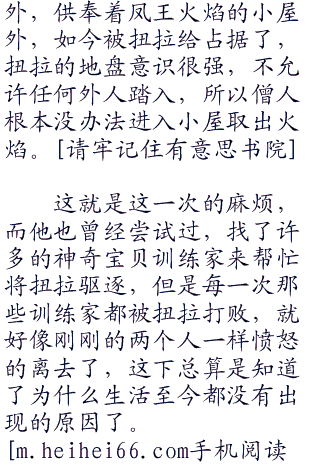 外，供奉着凤王火焰的小屋
外，如今被扭拉给占据了，
扭拉的地盘意识很强，不允
许任何外人踏入，所以僧人
根本没办法进入小屋取出火
焰。[请牢记住有意思书院]
这就是这一次的麻烦，
而他也曾经尝试过，找了许
多的神奇宝贝训练家来帮忙
将扭拉驱逐，但是每一次那
些训练家都被扭拉打败，就
好像刚刚的两个人一样愤怒
的离去了，这下总算是知道
了为什么生活至今都没有出
现的原因了。
[m.heihei66.com手机阅读